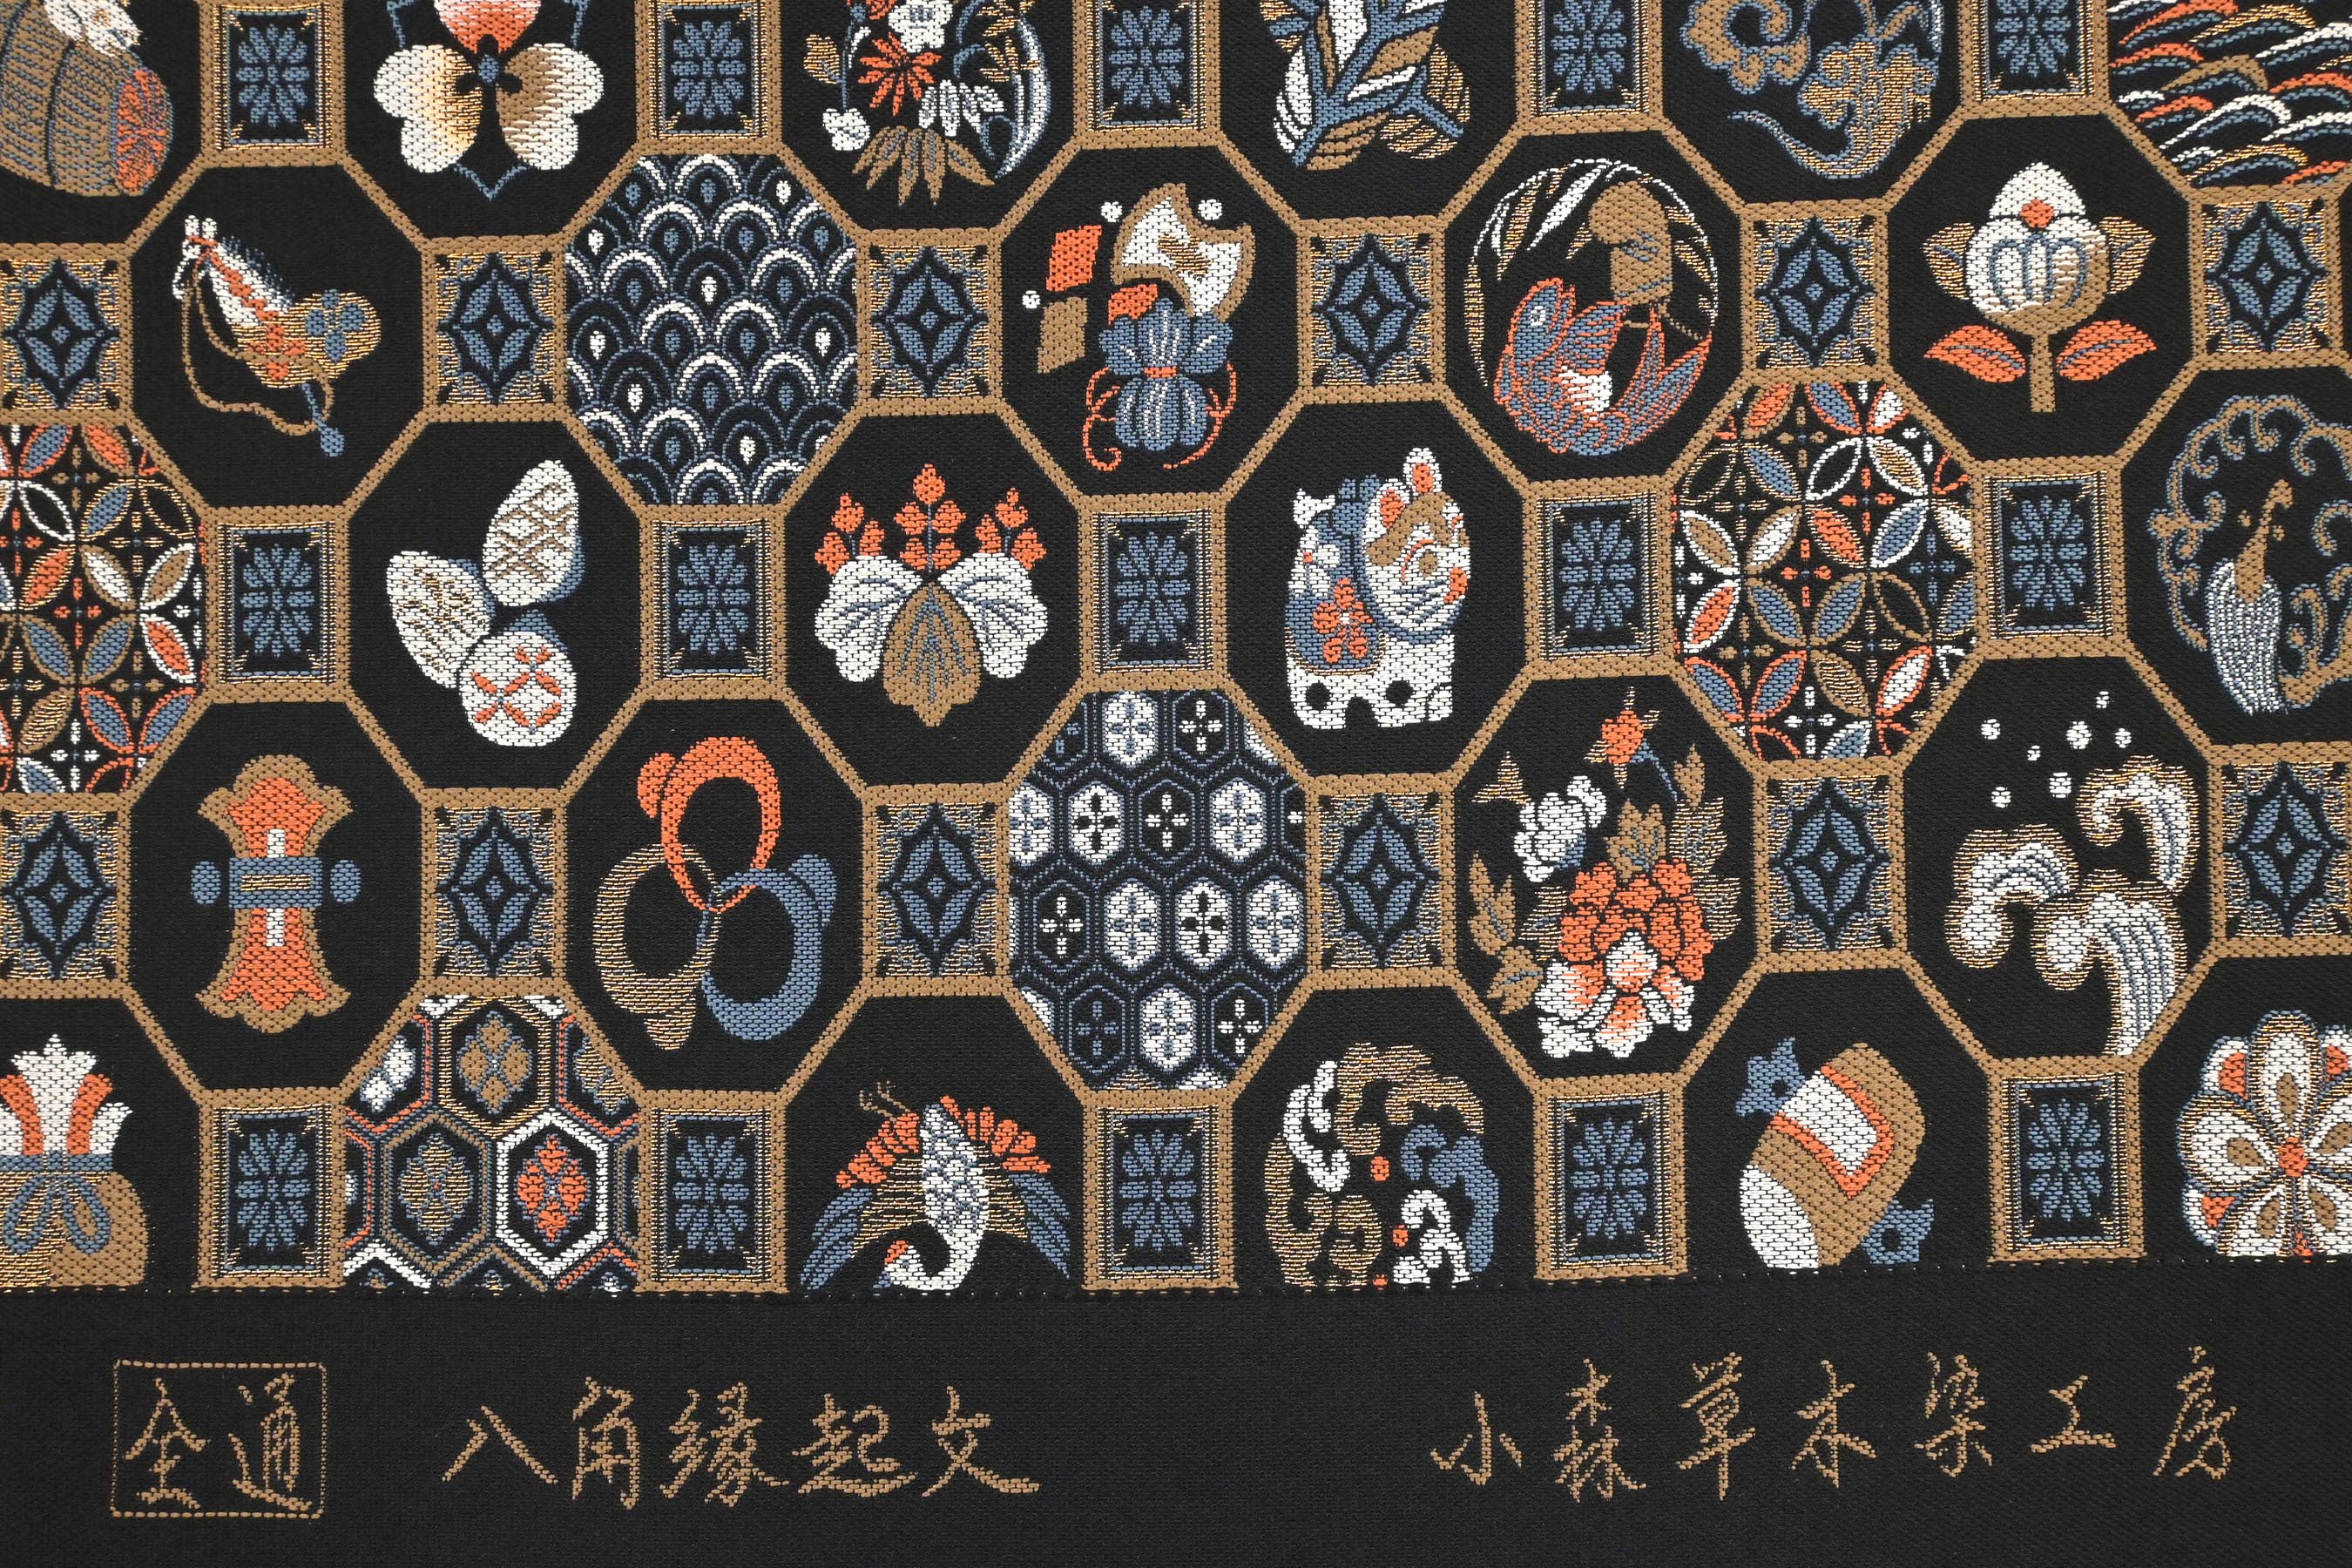 全通
八角縁起文
小森草木染工房